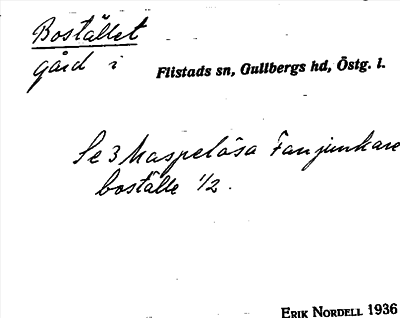 Bostället
gård i Flistads sn, Gullbergs hd, Östg. l.
Se 3 Maspelösa Fanjunkare
boställe 1/2.
ERIK NORDELL 1936